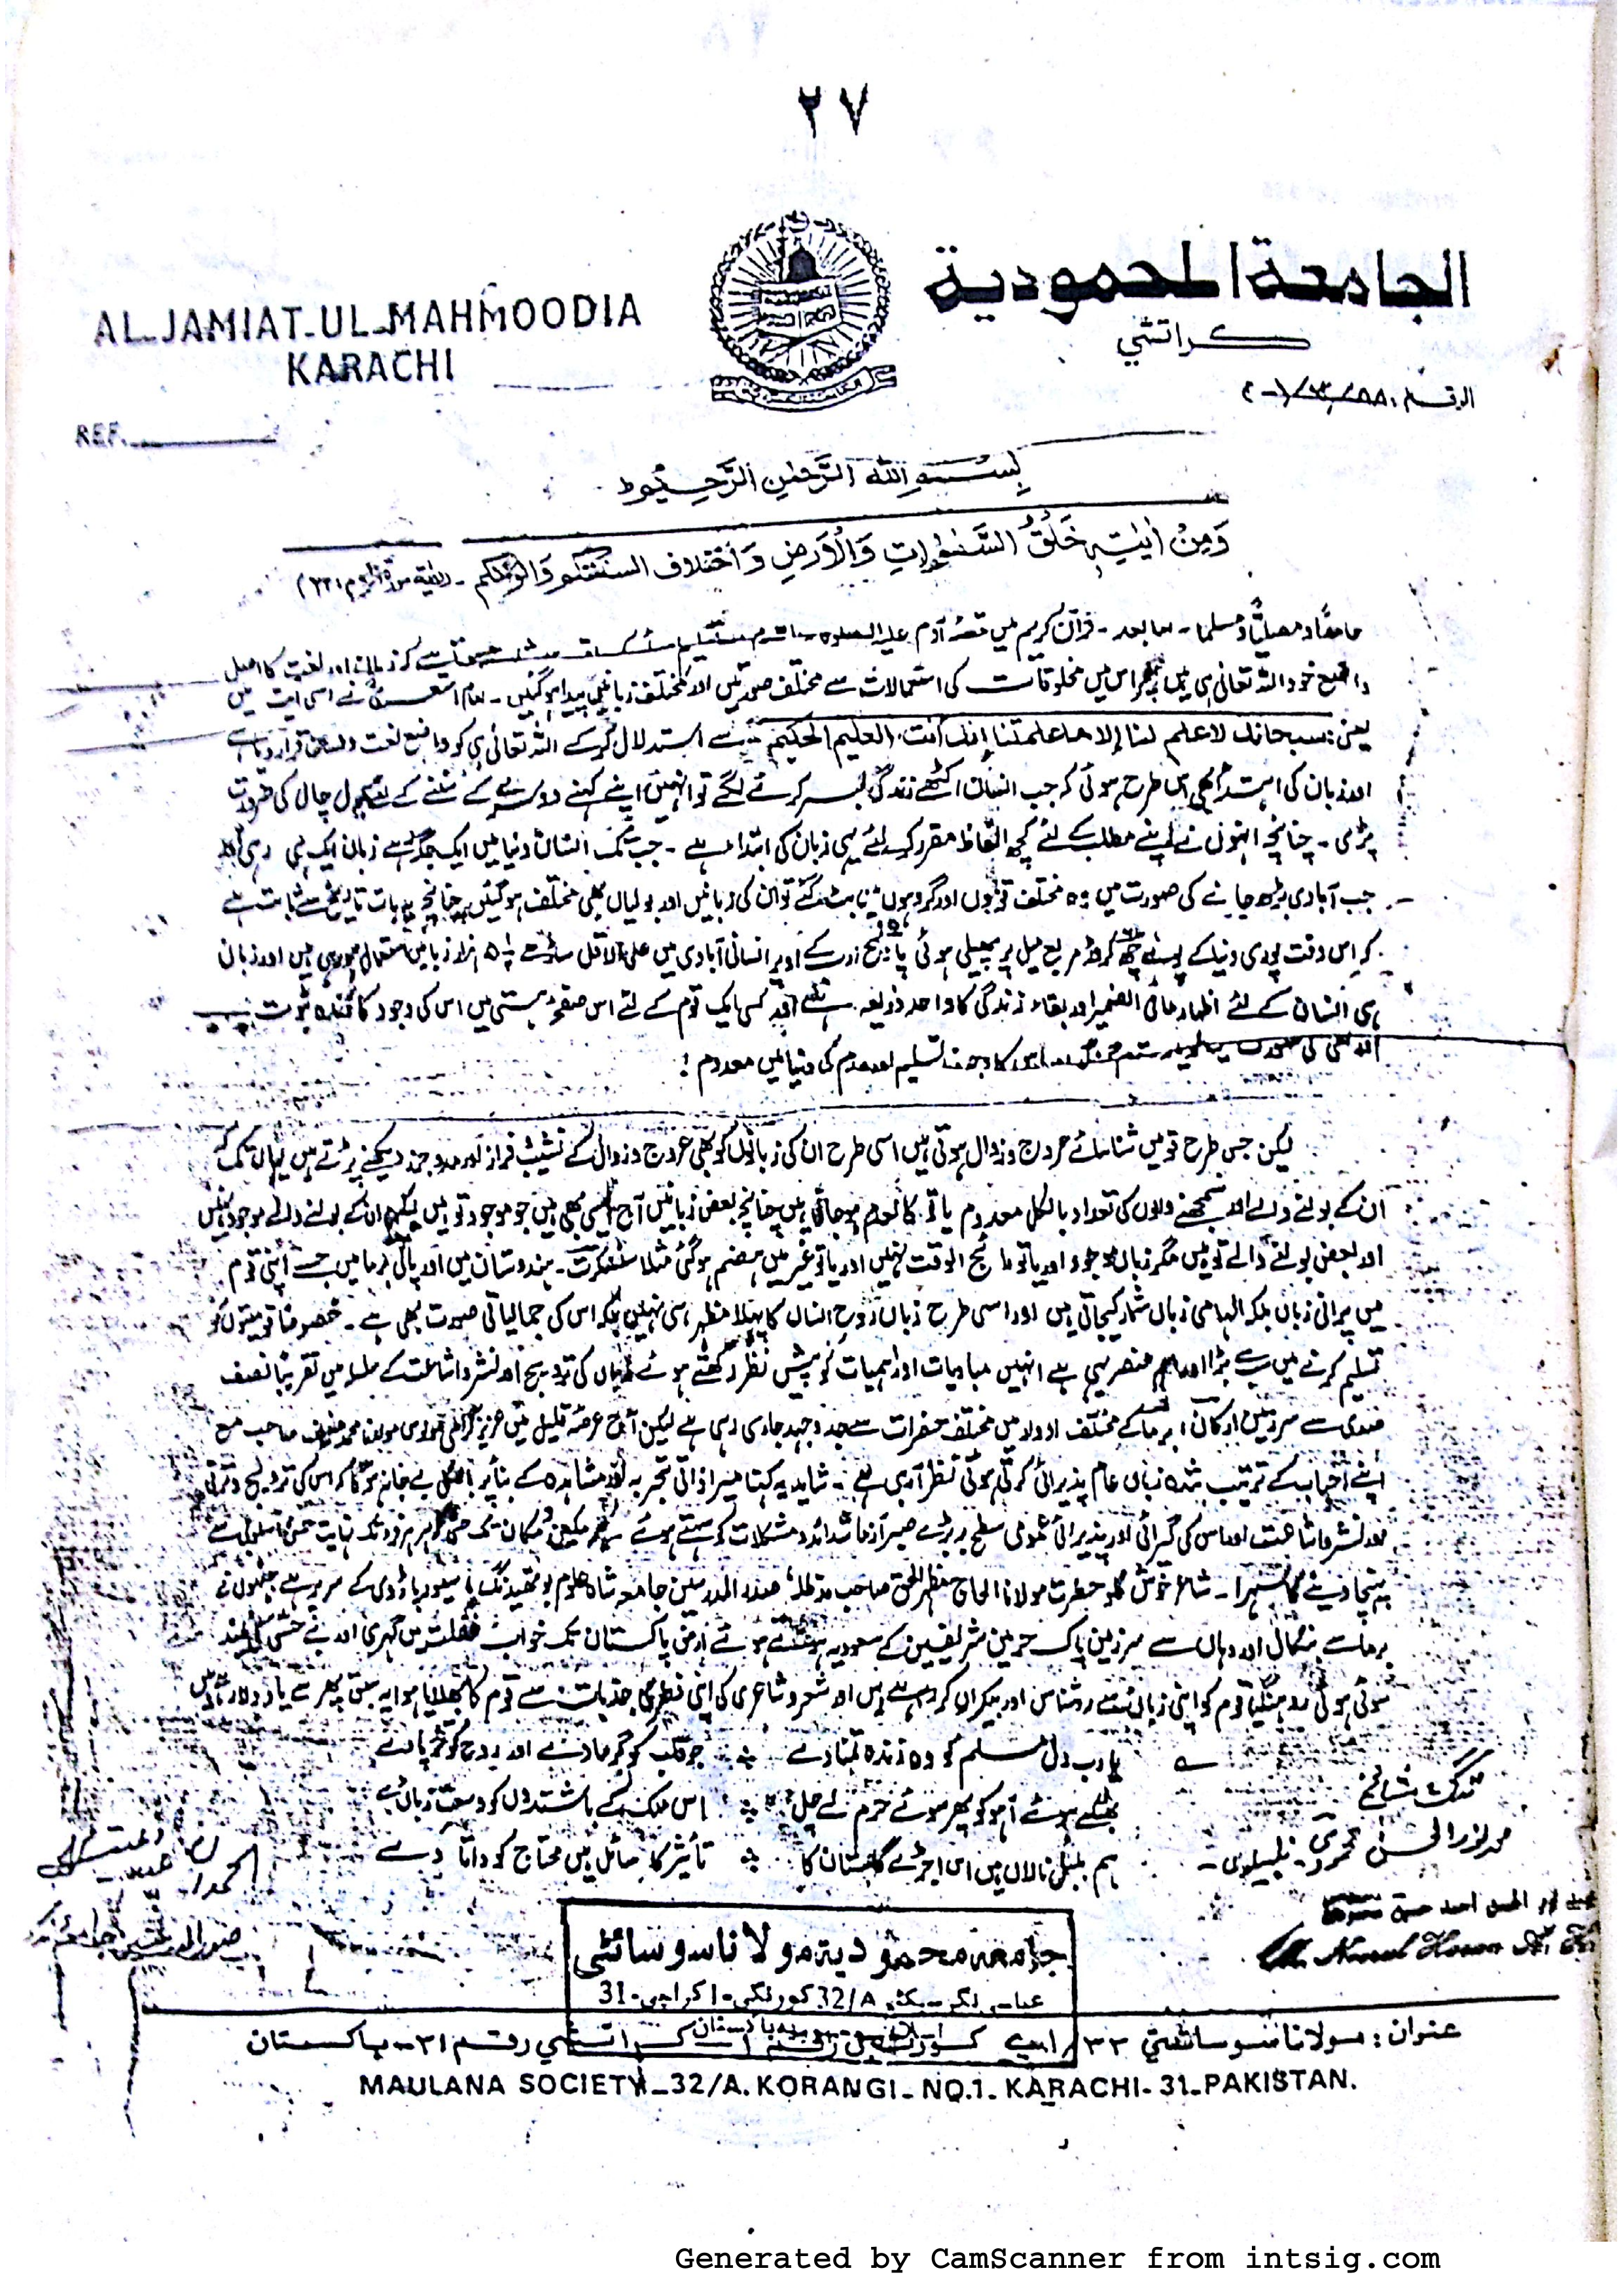 ۲۷
الجامعة المحمودية
كراتشي
AL-JAMIAT-UL-MAHMOODIA
KARACHI
REF.
بسم اللہ الرحمٰن الرحیم
وَمِنْ اٰیٰتِہٖ خَلْقُ السَّمٰوٰتِ وَالْاَرْضِ وَاخْتِلَافُ السنتکم وَالوانکم
حامداً و مصلیاً و مسلما - اما بعد - قرآن کریم میں قصۂ آدم علیہ کہ زبان اور لغت کا اصل
واضع خود اللہ تعالیٰ ہی ہیں پھر اس میں مخلوقات کی استعمالات سے مختلف صورتیں اور مختلف زبانیں پیدا ہو گئیں - امام اشعری نے اسی آیت میں
یعنی: سبحانك لا علم لنا إلا ما علمتنا إنك أنت العليم الحكيم سے استدلال کر کے اللہ تعالیٰ ہی کو واضع لغت قرار دیا ہے
اور زبان کی ابتدا بھی اس طرح ہوئی کہ جب انسان اکٹھے زندگی بسر کرنے لگے تو انہیں اپنے کہنے دوسرے کے سننے کے لئے بول چال کی ضرورت
پڑی - چنانچہ انہوں نے اپنے مطلب کے لئے کچھ الفاظ مقرر کر لئے یہی زبان کی ابتدا ہے - جب تک انسان دنیا میں ایک جگہ رہے زبان ایک ہی رہی اور
جب آبادی بڑھ جانے کی صورت میں وہ مختلف قوموں اور گروہوں میں بٹ گئے تو ان کی زبانیں اور بولیاں بھی مختلف ہو گئیں چنانچہ یہ بات تاریخ سے ثابت ہے
کہ اس وقت پوری دنیا کے پونے چھ کروڑ مربع میل پر پھیلی ہوئی پانچ ارب کے اوپر انسانی آبادی میں علی الاقل ہزار زبانیں استعمال ہو رہی ہیں اور زبان
ہی انسان کے لئے اظہار مافی الضمیر اور بقاء زندگی کا واحد ذریعہ ہے اور کسی ایک قوم کے لئے اس صفحۂ ہستی میں اس کی وجود کا زندہ ثبوت
تسلیم اور عدم کی دنیا میں معدوم !
لیکن جس طرح قومیں شناسائے عروج و زوال ہوتی ہیں اسی طرح ان کی زبانوں کو بھی عروج و زوال کے نشیب و فراز اور مد و جزر دیکھنے پڑتے ہیں یہاں تک کہ
ان کے بولنے والے اور سمجھنے والوں کی تعداد بالکل معدوم یا تو کالعدم ہو جاتی ہیں چنانچہ بعض زبانیں آج ایسی بھی ہیں جو موجود تو ہیں لیکن ان کے بولنے والے موجود نہیں
اور بعض بولنے والے تو ہیں مگر زبان موجود اور یا تو رائج الوقت نہیں اور یا تو غیر میں ہضم ہو گئی مثلا سنسکرت - ہندوستان میں اور پالی برما میں جسے اپنی قوم
میں پرانی زبان بلکہ الہامی زبان شمار کیجاتی ہیں اور اسی طرح زبان روح انسان کا پہلا مظہر ہی نہیں بلکہ اس کی جمالیاتی صورت بھی ہے - خصوصا قومیتوں کو
تسلیم کرنے میں سب سے بڑا اور اہم عنصر یہی ہے انہیں مبادیات اور اہمیات کو پیش نظر رکھتے ہوئے زبان کی ترویج اور نشر و اشاعت کے سلسلہ میں تقریبا نصف
صدی سے سرزمین ارکان، برما کے مختلف ادوار میں مختلف حضرات سے جدوجہد جاری رہی ہے لیکن آج عرصۂ قلیل میں عزیز گرامی مولوی مولانا محمد حنیف صاحب مع
اپنے احباب کے ترتیب شدہ زبان عام پذیرائی کرتی ہوئی نظر آرہی ہے - شاید یہ کہنا میرا ذاتی تجربہ اور مشاہدہ کے بنا پر بالکل بے جا نہ ہو گا کہ اس کی ترویج و ترقی
اور نشر و اشاعت اور اس کی گہرائی اور پذیرائی عمومی سطح پر بڑے صبر آزما شدائد و مشکلات کو سہتے ہوئے ہر مکین و مکان تک حتی کہ ہر ہر فرد تک نہایت حسن اسلوبی سے
پہنچا دینے کا سہرا - شاعر خوش گلو حضرت مولانا الحاج مظہر الحق صاحب مدظلہ صدر المدرسین جامعہ شاہ علوم کے سر پر ہے جنہوں نے
برما سے بنگال اور وہاں سے سرزمین پاک حرمین شریفین کے سعودیہ ہوتے ہوئے ارض پاکستان تک خواب غفلت میں گہری اور بے حسی کی نیند
سوئی ہوئی روہنگیا قوم کو اپنی زبان سے روشناس اور بیکراں کر رہے ہیں اور شعر و شاعری کی اپنی فطری جذبات سے قوم کا بھلایا ہوا یہ سبق پھر سے یاد دلا رہے ہیں
یارب دل مسلم کو وہ زندہ تمنا دے ٭ جو قلب کو گرما دے اور روح کو تڑپا دے
بھٹکے ہوئے آہو کو پھر سوئے حرم لے چل ٭ اس ملک کے باشندوں کو وسعت زباں دے
ہم بلبل نالاں ہیں اس اجڑے گلستان کا ٭ تأثیر کا سائل ہیں محتاج کو داتا دے
محمد نور الحسن محمودی
جامعہ محمودیہ مولانا سوسائٹی
32/A کورنگی-1 کراچی-31
عنوان: مولانا سوسائٹي
كراتشي رقم ۳۱-پاكستان
MAULANA SOCIETY-32/A. KORANGI-NO.1. KARACHI-31-PAKISTAN.
Generated by CamScanner from intsig.com